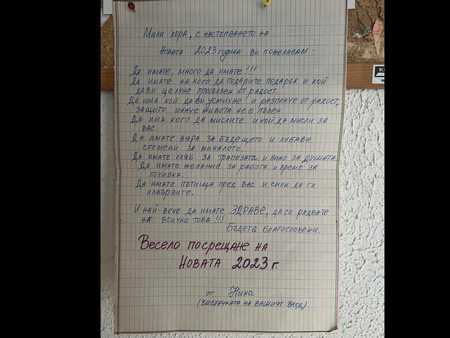 Мили хора, с настъпването на
Новата 2023 година Ви пожелавам:
Да имате, много да имате!!!
Да имате на кого да подарите подарък и кой
да ви целуне просълзен от радост.
Да има кой да ви усмихне и разплаче от радост,
защото иначе живота не е пълен.
Да има кого да мислите и кой да мисли за
вас.
Да имате вяра за бъдещето и хубави
спомени за миналото.
Да имате хляб за трапезата и вино за душата.
Да имате желание за работа и време за
почивка.
Да имате пътища пред вас и сили да ги
извървите.
И най-вече да имате ЗДРАВЕ, да се радвате
на всичко това!!!
Бъдете благословени.
Весело посрещане на
Новата 2023 г.
от Нина
(чистачката на вашият вход)